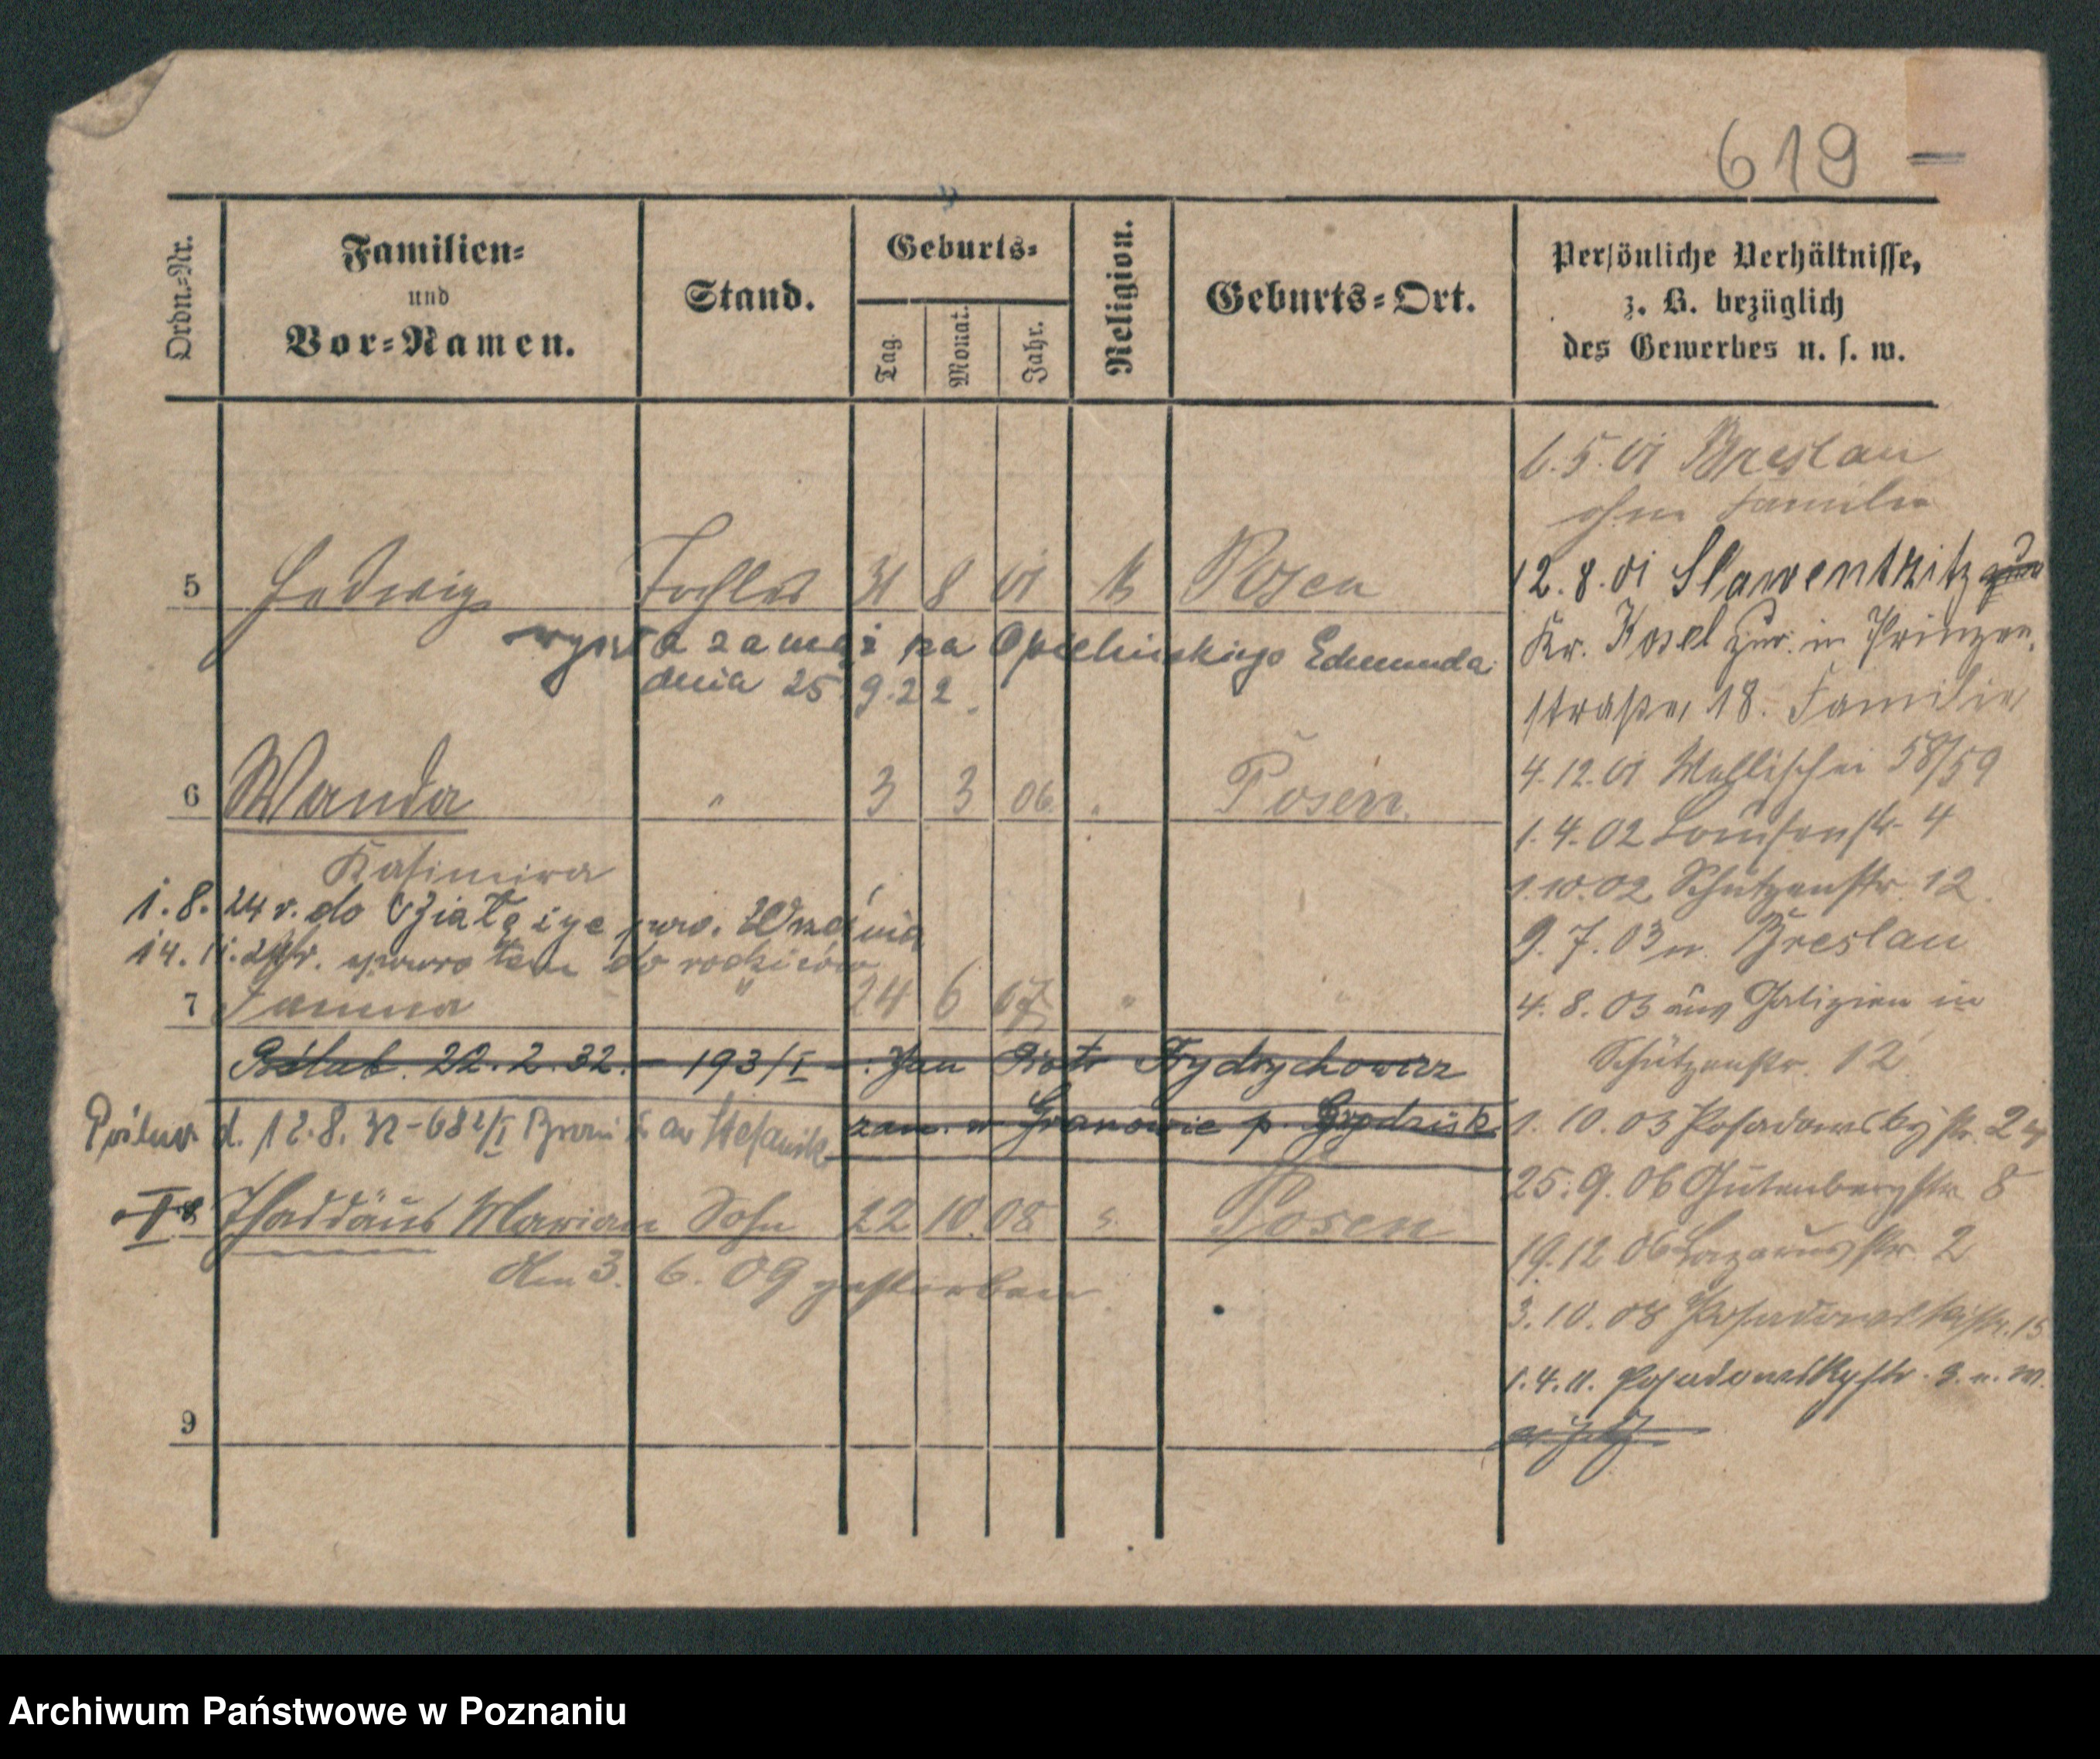 619 —
Ordn.-Nr.
Familien-
und
Vor-Namen.
Stand.
Geburts-
Tag.
Monat.
Jahr.
Religion.
Geburts-Ort.
Persönliche Verhältnisse,
z. B. bezüglich
des Gewerbes u. s. w.
5 Hedwig Tochter 31 8 01 k Posen
wyszła zamąż za Opielińskiego Edmunda
dnia 25.9.22.
6 Wanda " 3 3 06 " Posen
Kasimira
1.8.24 r. do pow. Września
14. 11. 24 r. spowrotem do rodziców
7 Janina " 24 6 07 " "
Póślub. 22.2.32. – 193/I – Jan Piotr Frydrychowicz
zam. w Granowie p. Grodzisk
Poślub d. 12.8.32 – 682/I Stefaniak
8 Thaddäus Marian Sohn 22 10 08 " Posen
den 3. 6. 09 gestorben
9
6.5.01 Breslau
ohne Familie
12.8.01 Slawentzitz
Kr. Kosel zur. in Prinzen-
straße 18. Familie
4.12.01 Wallischei 58/59
1.4.02 Louisenstr. 4
1.10.02 Schützenstr. 12.
9.7.03 n. Breslau
4.8.03 aus Galizien in
Schützenstr. 12
1.10.03 Posadowskystr. 2
25.9.06 Gutenbergstr. 8
19.12.06 Lazarusstr. 2
3.10.08 Posadowskystr. 15
1.4.11. Posadowskystr. 3.
Archiwum Państwowe w Poznaniu